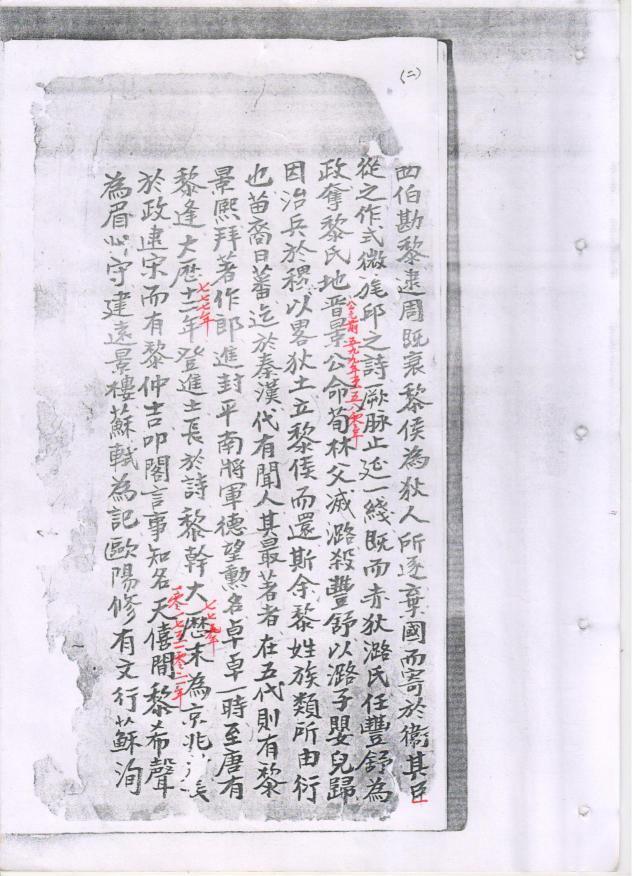 (二)
西伯勘黎逮周既衰黎侯為狄人所逐棄國而寄於衞其臣
從之作式微旄邱之詩厥脉止延一綫既而赤狄潞氏任豐舒為
公元前五九九年至五八零年
政奪黎氏地晋景公命荀林父滅潞殺豐舒以潞子嬰兒歸
因治兵於稷以畧狄土立黎侯而還斯余黎姓族類所由衍
也苗裔日蕃迄於秦漢代有聞人其最著者在五代則有黎
景熙拜著作郎進封平南將軍德望勲名卓卓一時至唐有
七七七年
七七九年
黎逢大歷十二年登進士長於詩黎幹大歷末為京兆
一零一七至一零二一年
於政逮宋而有黎仲吉叩閣言事知名天僖間黎希聲
為眉州守建遠景樓蘇軾為記歐陽修有文行蘇洵